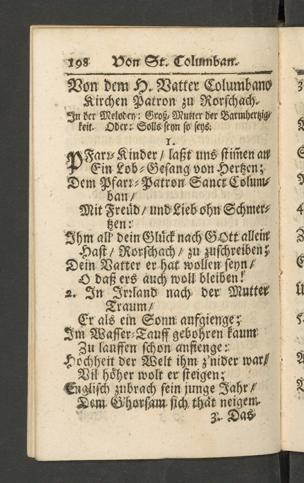 198 Von St. Columban.
Von dem H. Vatter Columbano
Kirchen Patron zu Rorschach.
In der Melodey: Groß-Mutter der Barmhertzig-
keit. Oder: Solls seyn so seys.
1.
PFarr-Kinder / laßt uns stim̃en an
Ein Lob-Gesang von Hertzen;
Dem Pfarr-Patron Sanct Colum-
ban /
Mit Freüd / und Lieb ohn Schmer-
tzen:
Ihm all dein Glück nach GOtt allein
Hast / Rorschach / zu zuschreiben;
Dein Vatter er hat wollen seyn /
O daß ers auch woll bleiben!
2. In Irrland nach der Mutter
Traum /
Er als ein Sonn aufgienge;
Im Wasser-Tauff gebohren kaum
Zu lauffen schon anfienge:
Hochheit der Welt ihm z'nider war /
Vil höher wolt er steigen;
Englisch zubrach sein junge Jahr /
Dem G'horsam sich thät neigen.
3. Das